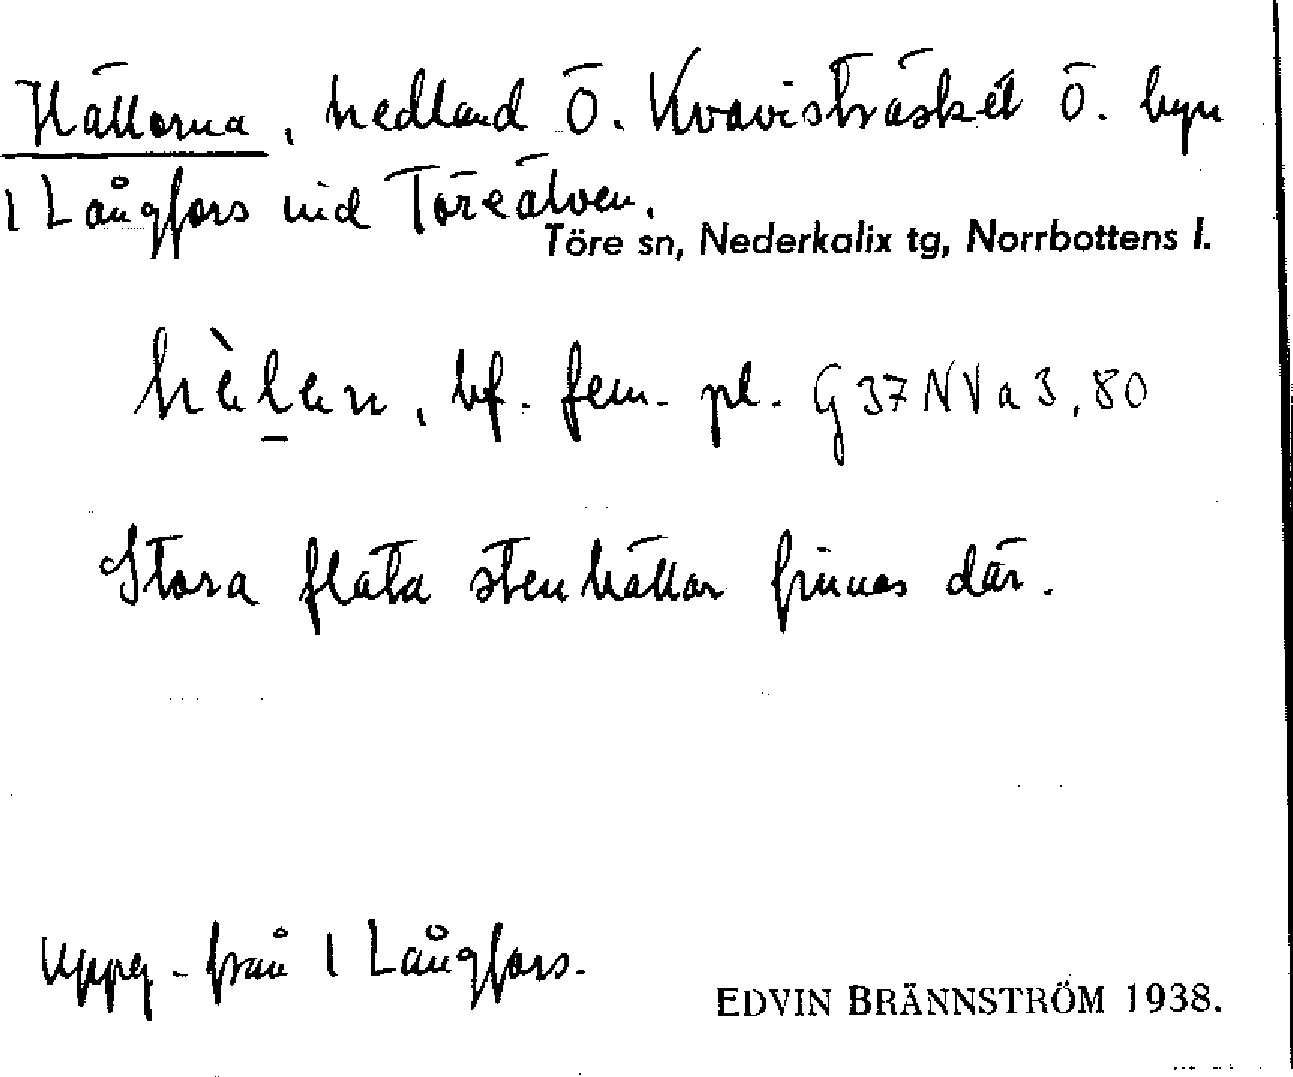 Hällorna, hedland Ö. Kvavisträsket Ö. byn
1 Långfors vid Töreälven.
Töre sn, Nederkalix tg, Norrbottens l.
hèlen, bf. fem. pl. G 37 NV a 3, 80
Stora flata stenhällar finnas där.
Uppg. från 1 Långfors.
EDVIN BRÄNNSTRÖM 1938.